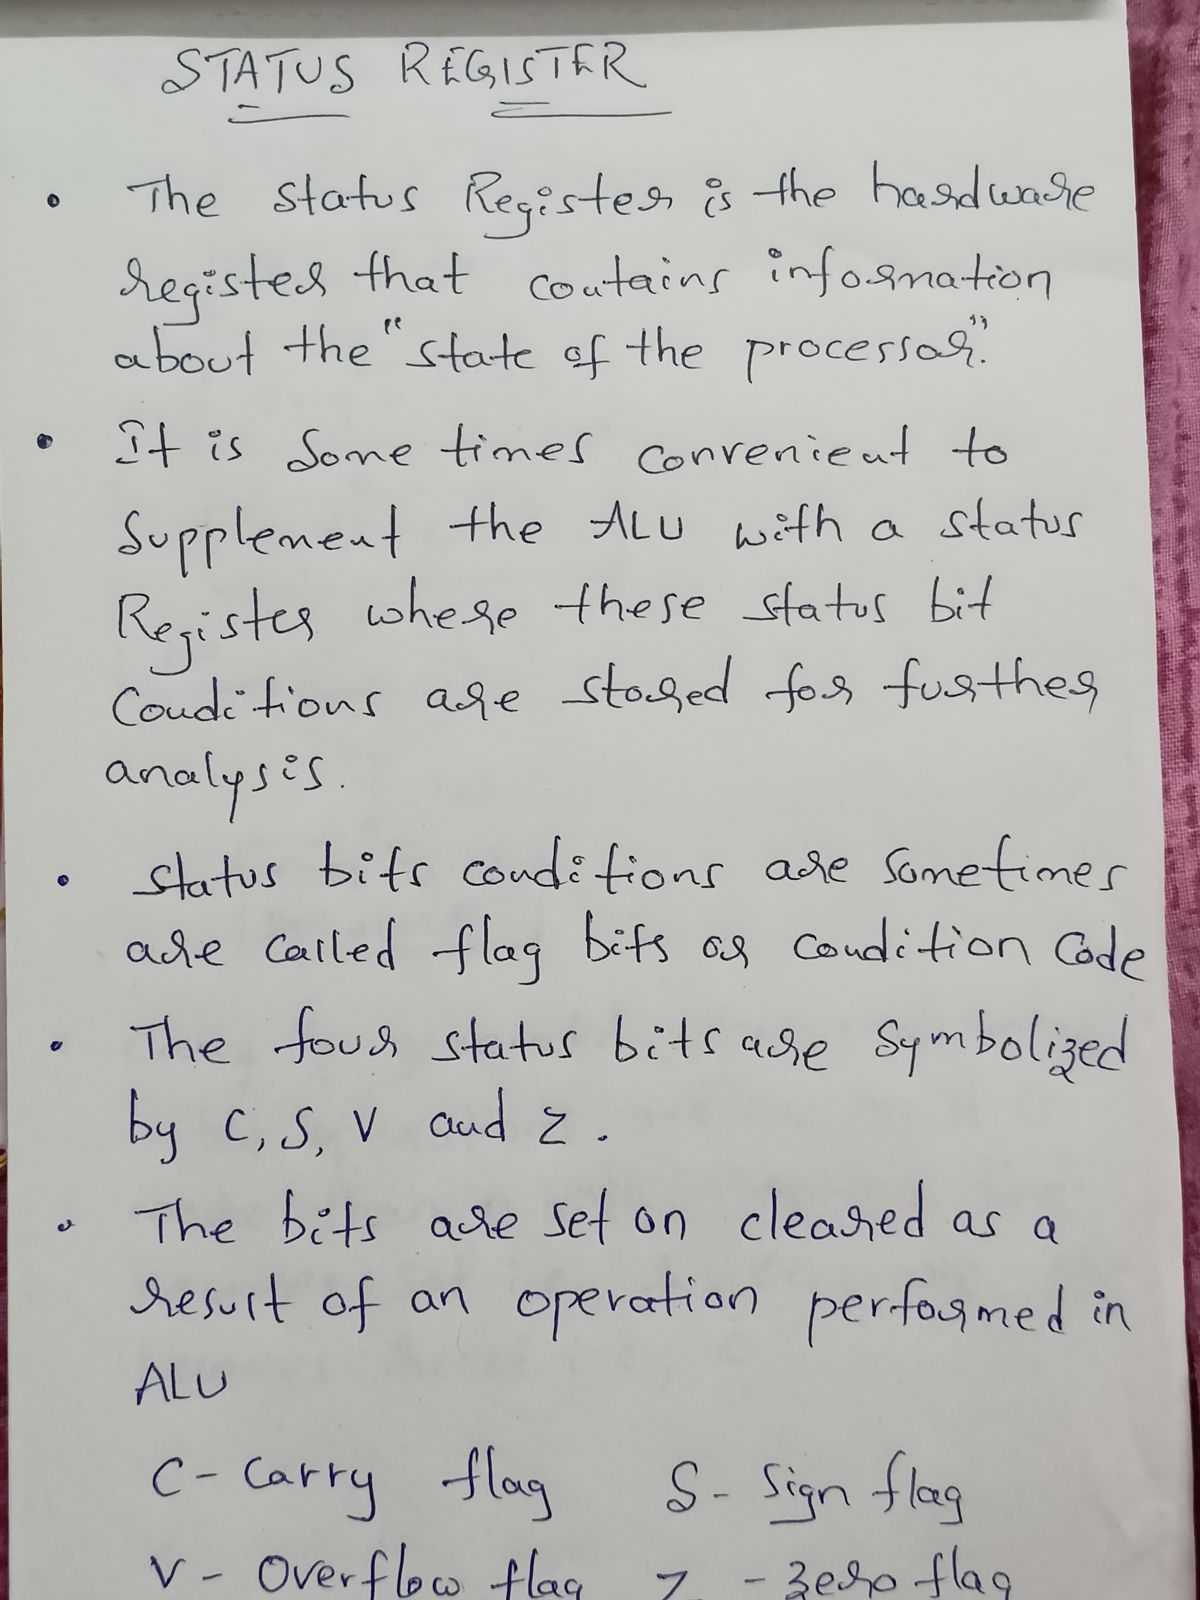 STATUS REGISTER
• The status Register is the hardware
register that contains information
about the "state of the processor".
• It is Some times convenient to
Supplement the ALU with a status
Register where these status bit
Conditions are stored for further
analysis.
• status bits conditions are Sometimes
are called flag bits or condition Code
• The four status bits are Symbolized
by C, S, V and Z.
• The bits are set on cleared as a
result of an operation performed in
ALU
C - Carry flag S - Sign flag
V - Overflow flag Z - zero flag